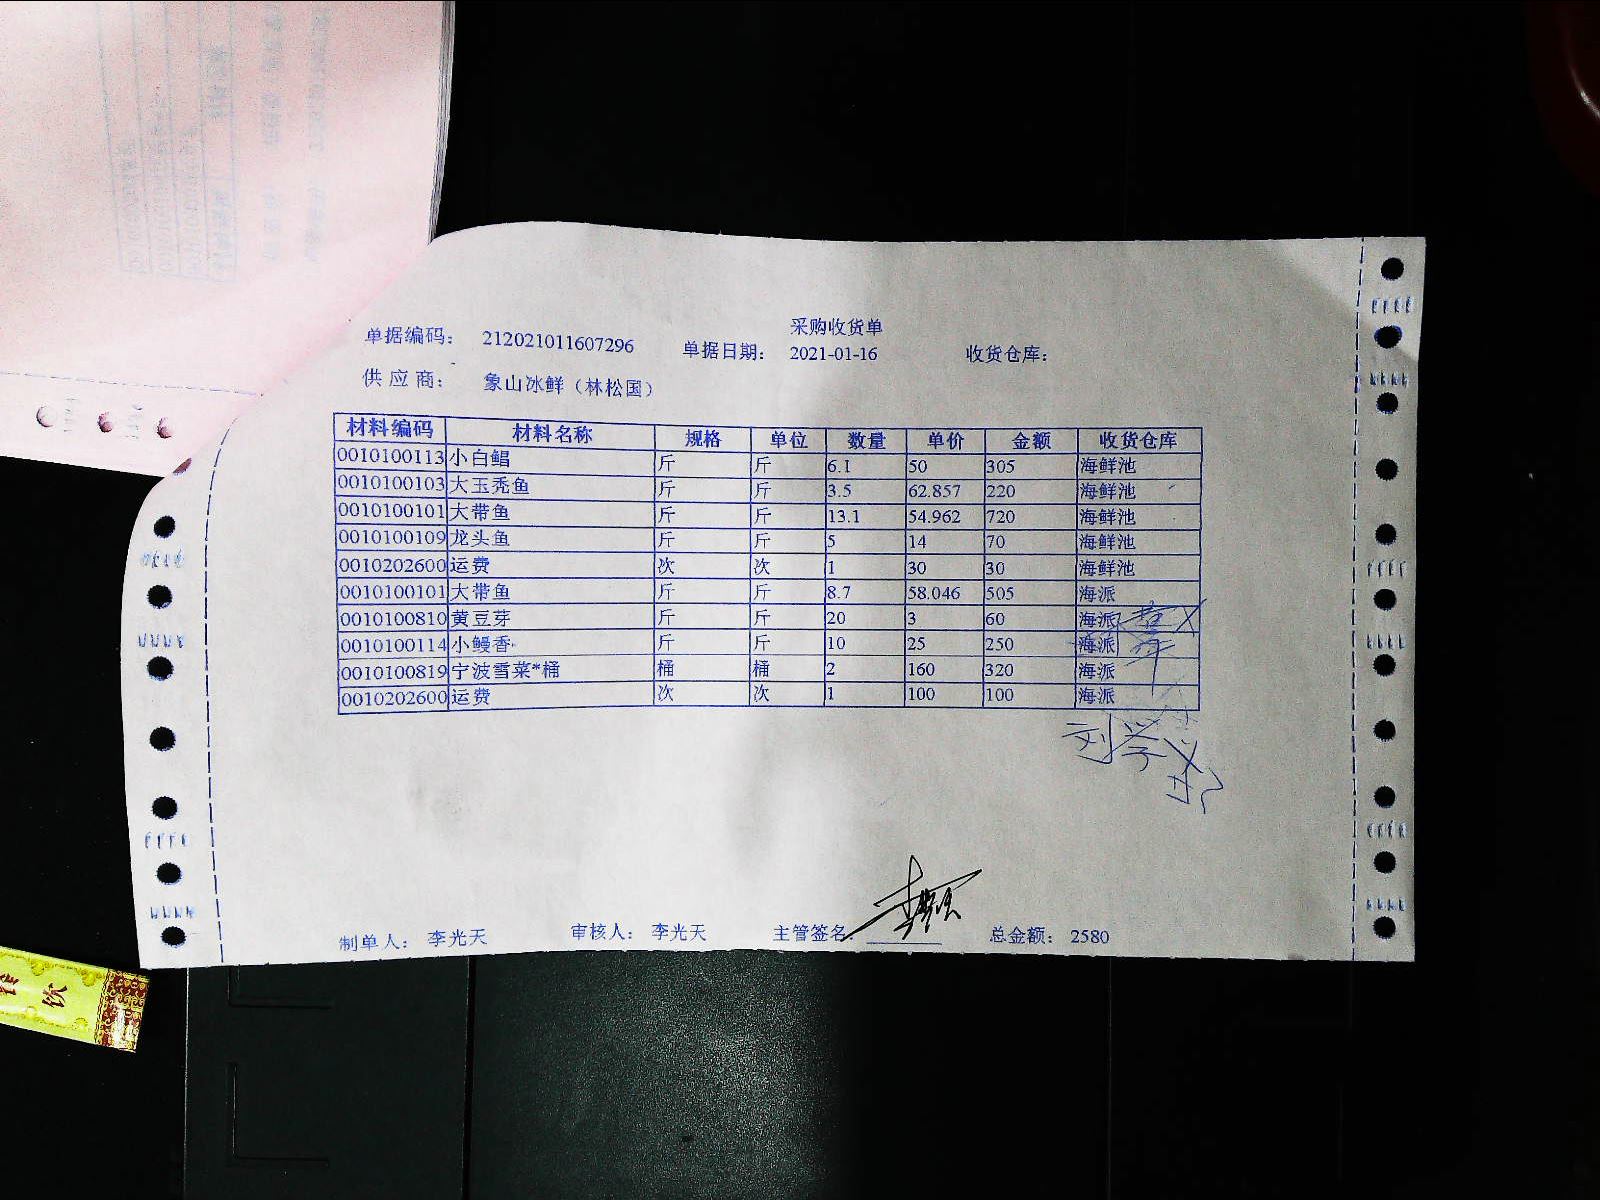 采购收货单
单据编码： 212021011607296 单据日期： 2021-01-16 收货仓库：
供 应 商： 象山冰鲜（林松国）
材料编码 材料名称 规格 单位 数量 单价 金额 收货仓库
0010100113 小白鲳 斤 斤 6.1 50 305 海鲜池
0010100103 大玉秃鱼 斤 斤 3.5 62.857 220 海鲜池
0010100101 大带鱼 斤 斤 13.1 54.962 720 海鲜池
0010100109 龙头鱼 斤 斤 5 14 70 海鲜池
0010202600 运费 次 次 1 30 30 海鲜池
0010100101 大带鱼 斤 斤 8.7 58.046 505 海派
0010100810 黄豆芽 斤 斤 20 3 60 海派
0010100114 小鳗香 斤 斤 10 25 250 海派
0010100819 宁波雪菜*桶 桶 桶 2 160 320 海派
0010202600 运费 次 次 1 100 100 海派
制单人： 李光天 审核人： 李光天 主管签名： 总金额： 2580
饮